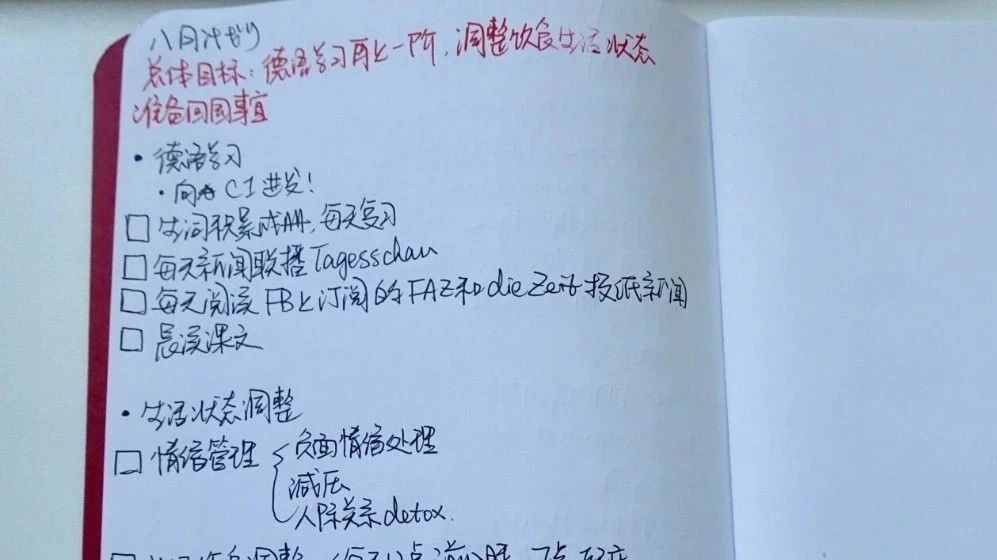 八月计划
总体目标：德语学习再上一阶，调整饮食生活状态
准备回国事宜
• 德语学习
• 向 C1 进发！
□ 生词积累成册，每天复习
□ 每天新闻联播 Tagesschau
□ 每天阅读 FB上订阅的FAZ和die Zeit 报纸新闻
□ 晨读课文
• 生活状态调整
□ 情绪管理 负面情绪处理
减压
人际关系detox.